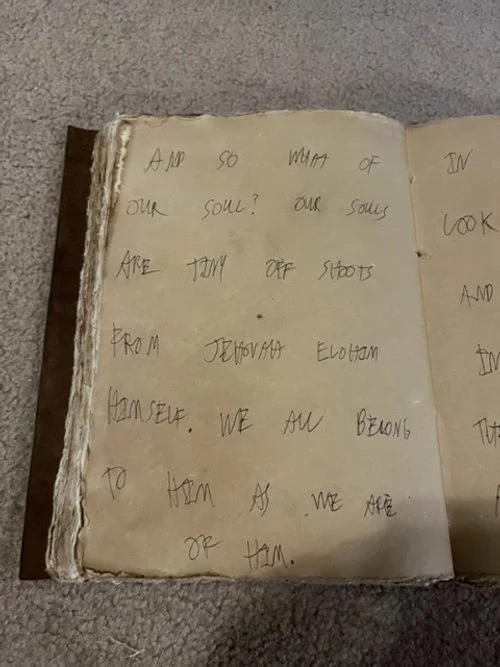 AND SO WHAT OF
OUR SOUL? OUR SOULS
ARE TINY OFF SHOOTS
FROM JEHOVAH ELOHIM
HIMSELF. WE ALL BELONG
TO HIM AS WE ARE
OF HIM.
IN
LOOK
AND
IN